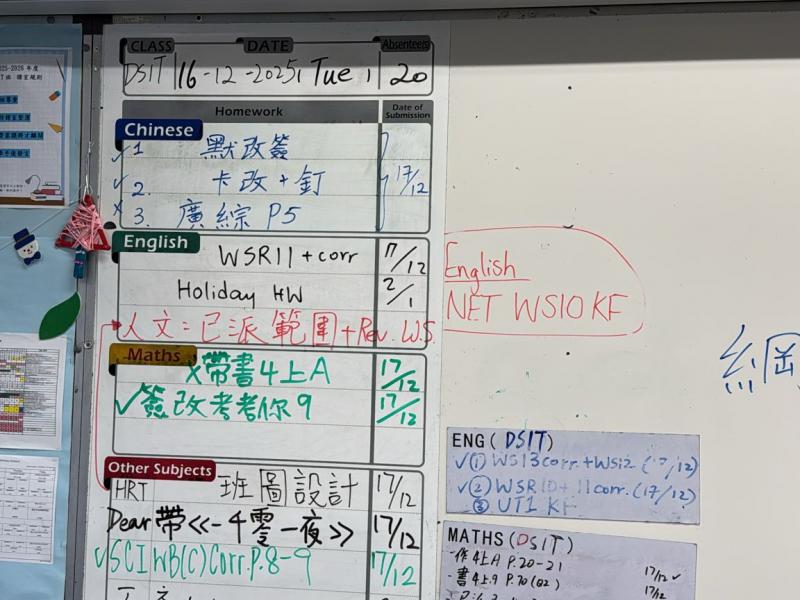 CLASS DATE Absentees
DSIT 16-12-2025, Tue, 20
Homework Date of Submission
Chinese
✓ 1. 默改簽
✓ 2. 卡改+釘 17/12
x 3. 廣綜 P5
English
WSR11+corr 17/12
Holiday HW 2/1
人文:已派範圍+Rev. W.S.
Maths
x帶書4上A 17/12
✓簽改考考你9 17/12
Other Subjects
HRT 班圖設計 17/12
Dear 帶<<一千零一夜>> 17/12
✓SCI WB(C)Corr.P.8-9 17/12
English
NET WS10 KF
綱
ENG (DSIT)
✓① WS13corr.+WS12 (17/12)
✓② WSR10+11corr. (17/12)
③ UT1 KF
MATHS (DSIT)
-作4上A P.20-21 17/12✓
-書4上9 P.70(Q2) 17/12
2025-2026 年度